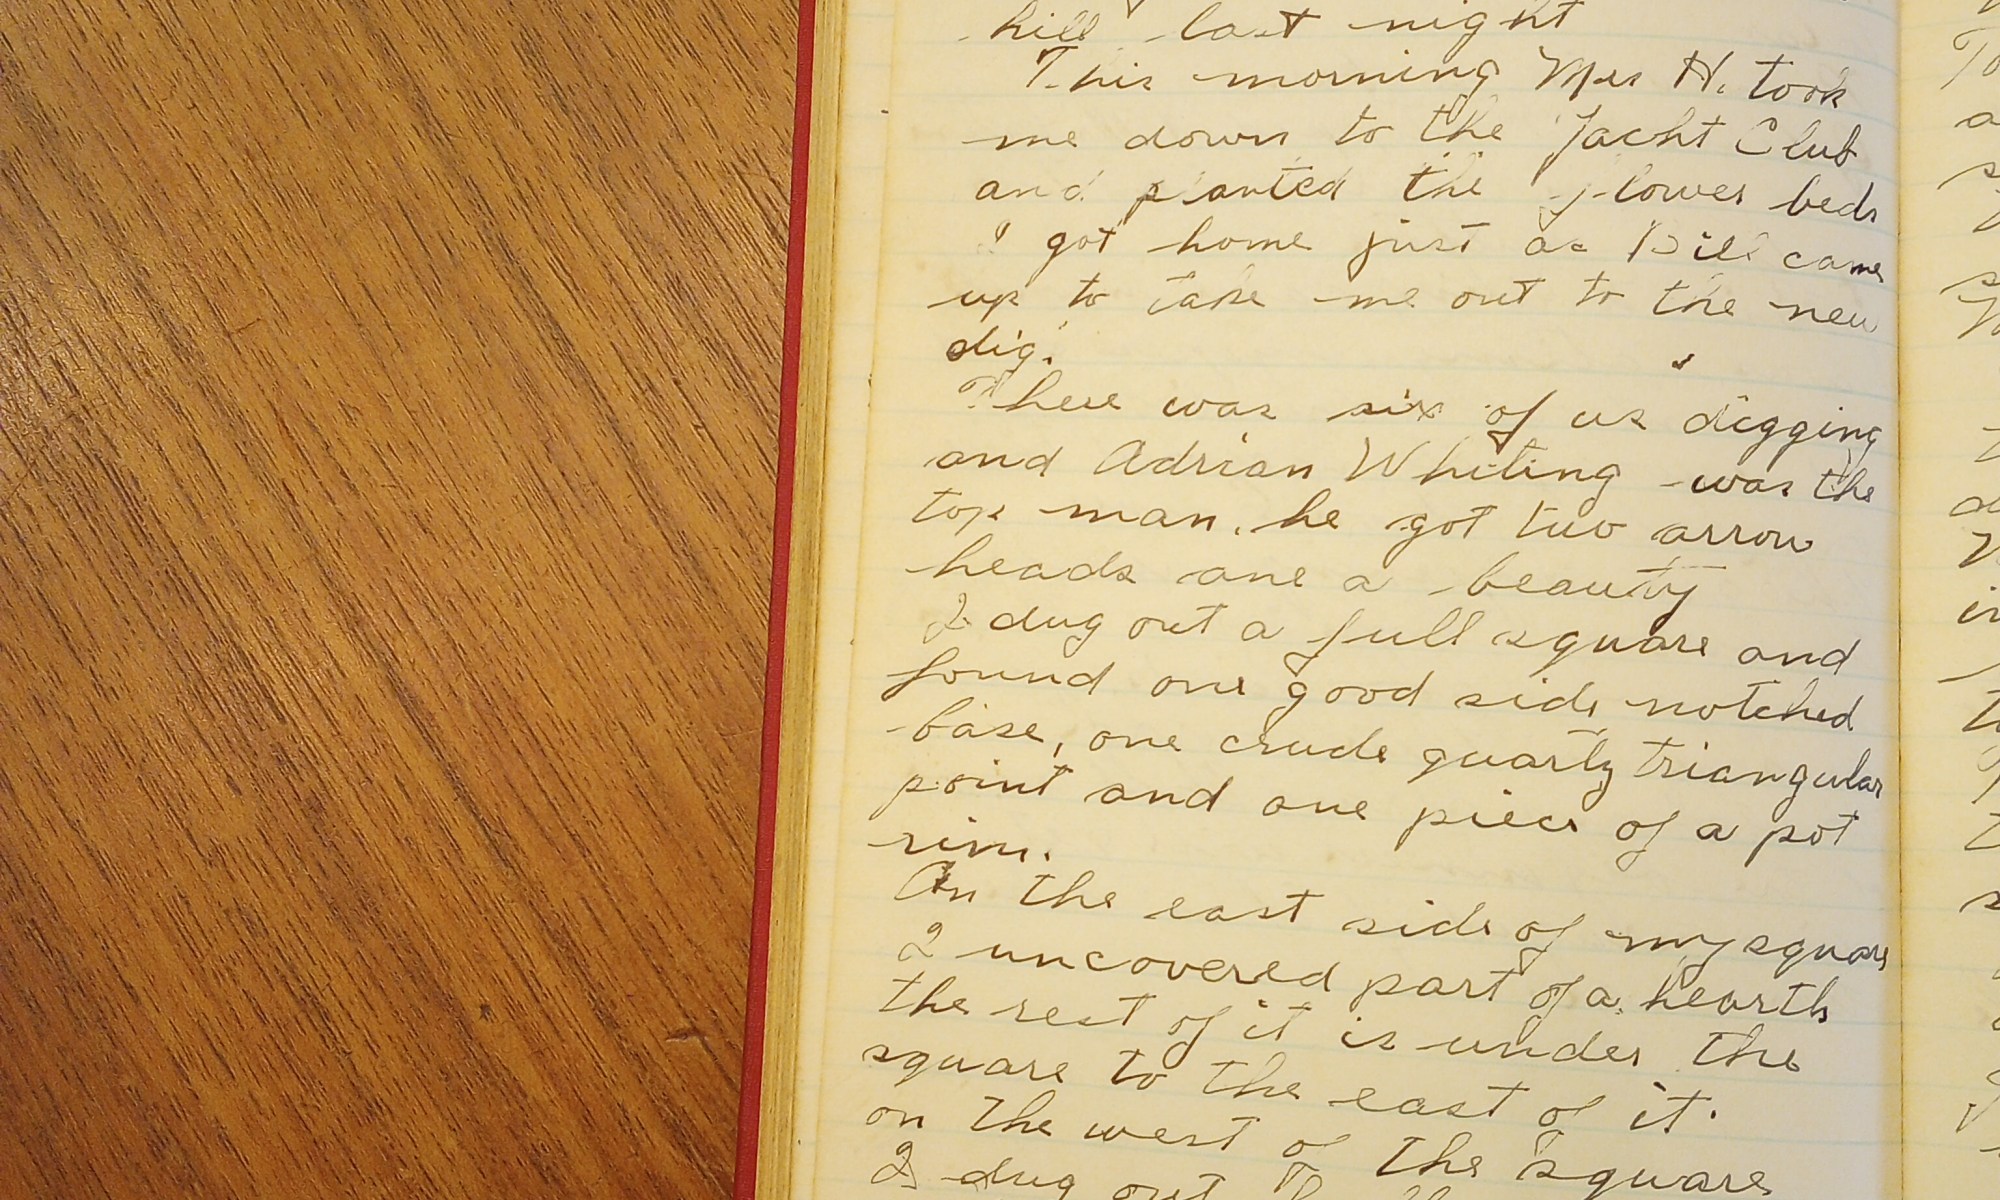 hill last night
This morning Mrs H. took
me down to the Yacht Club
and planted the flower beds
I got home just as Bill came
up to take me out to the new
dig.
There was six of us digging
and Adrian Whiting was the
top man. he got two arrow
heads one a beauty
I dug out a full square and
found one good side notched
base, one crude quartz triangular
point and one piece of a pot
rim.
On the east side of my square
I uncovered part of a hearth
the rest of it is under the
square to the east of it.
on the west of the square
I dug out